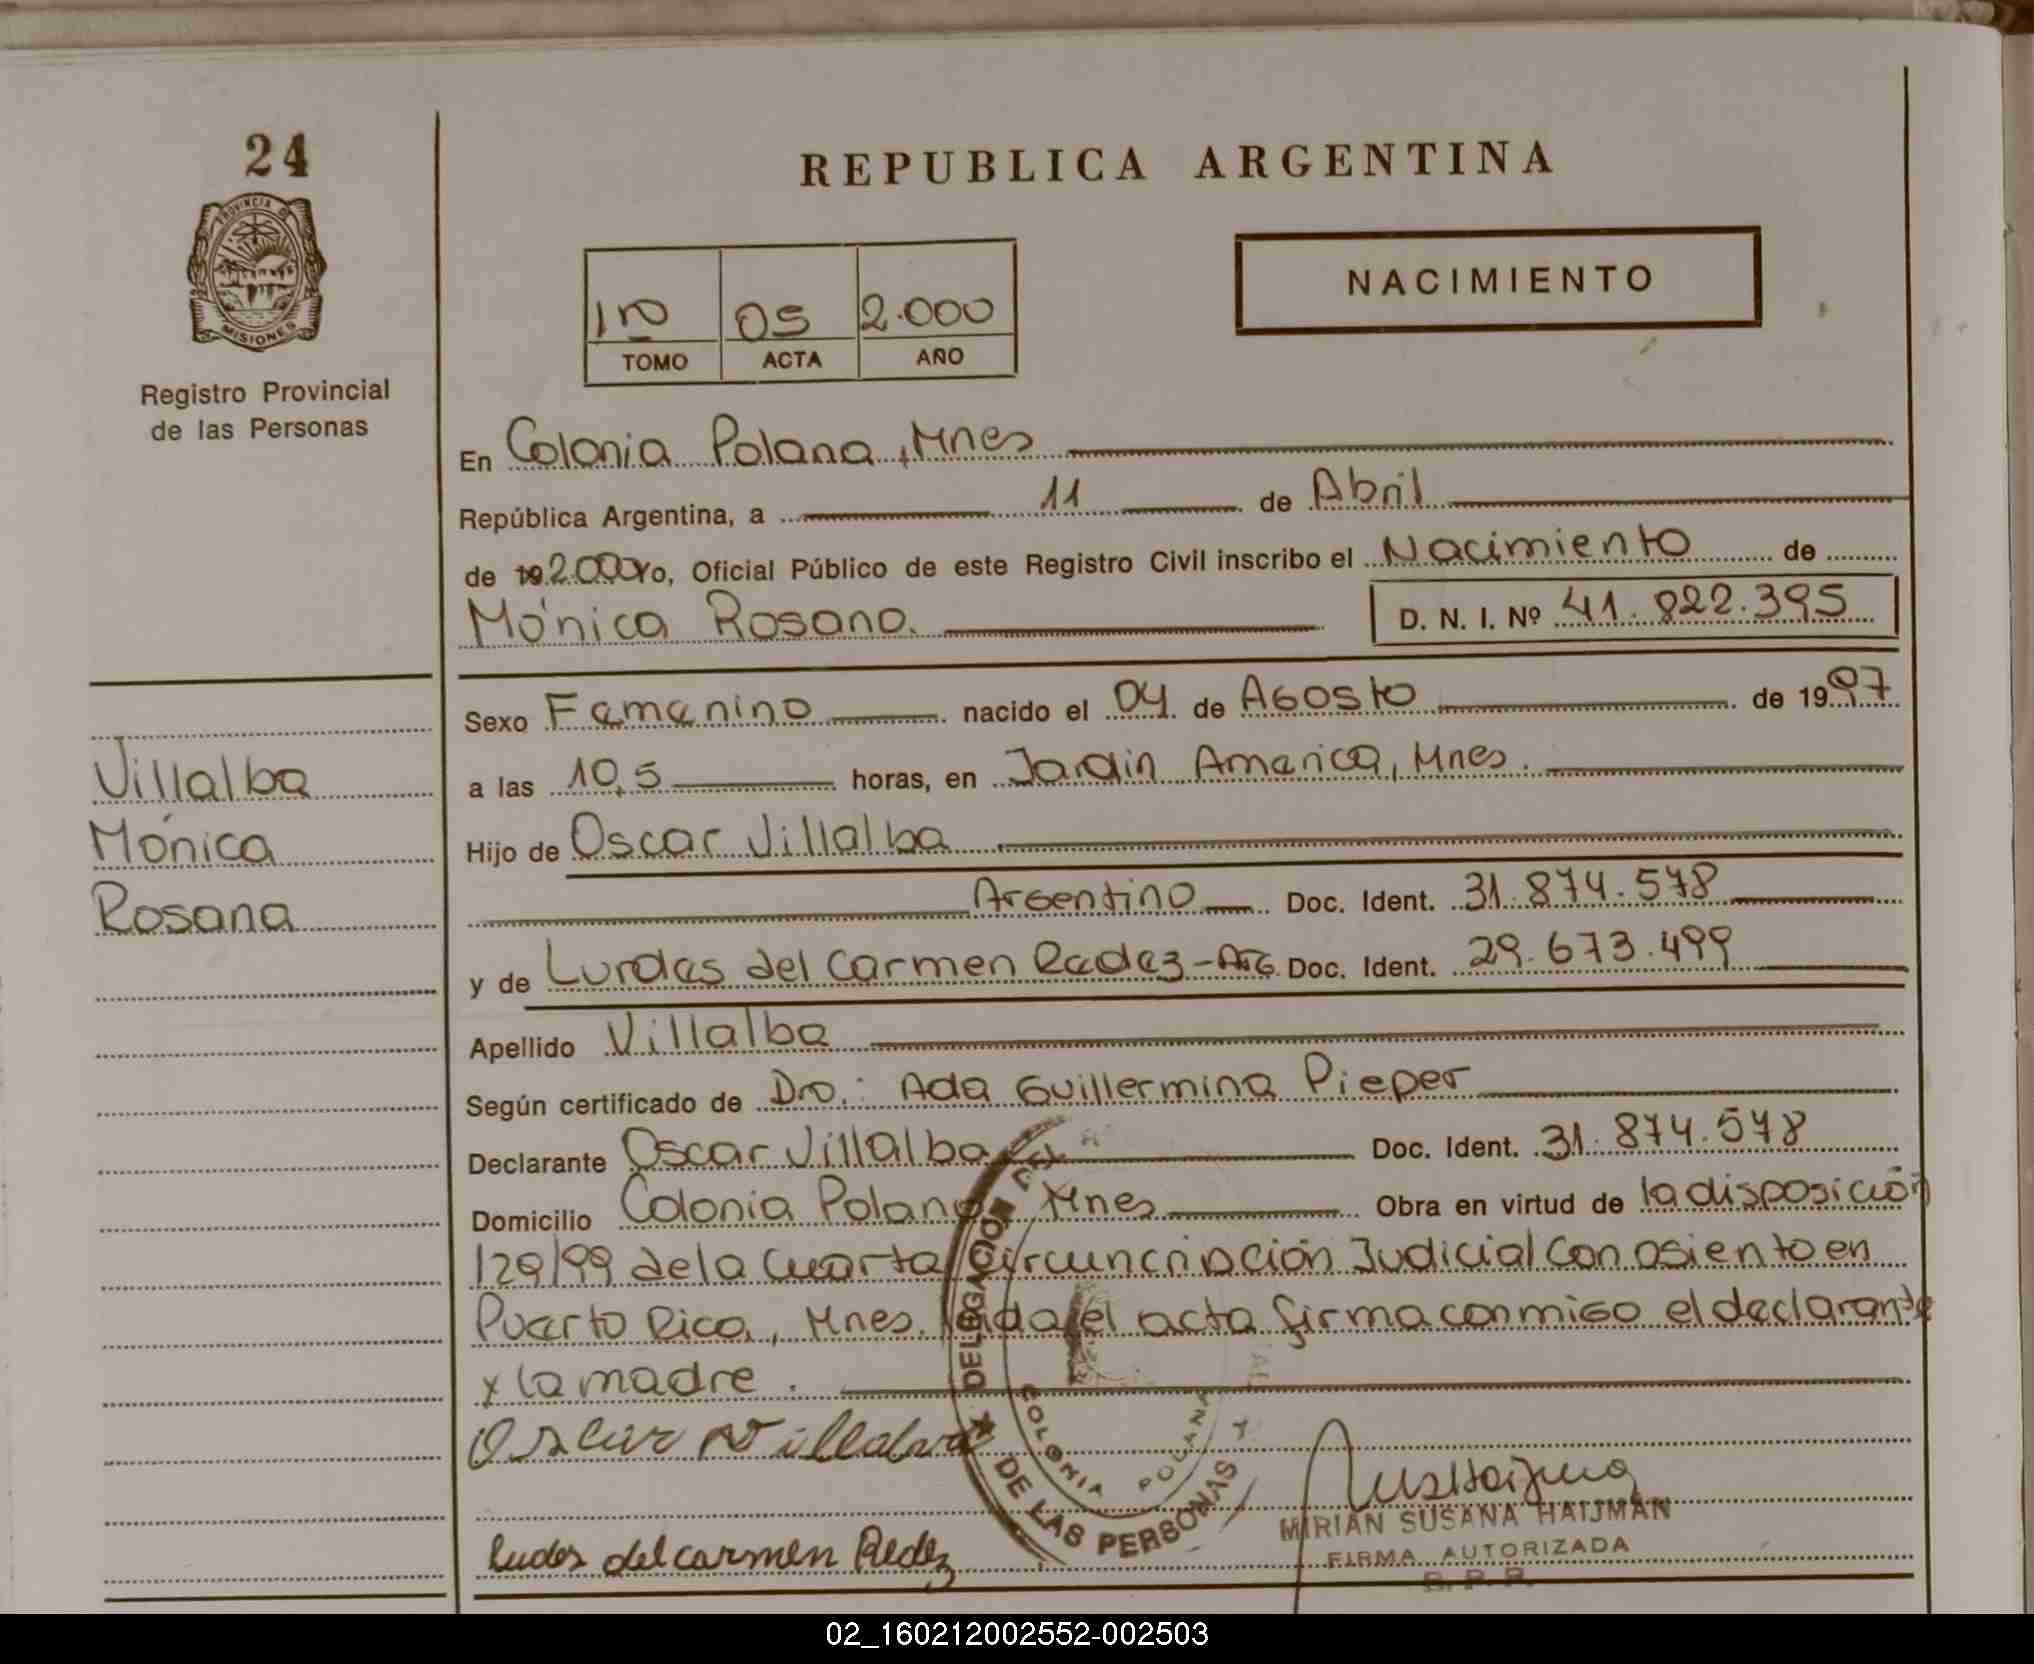 24
PROVINCIA D
MISIONES
Registro Provincial
de las Personas
REPUBLICA ARGENTINA
NACIMIENTO
1º 05 2.000
TOMO ACTA AÑO
En Colonia Polana, Mnes
República Argentina, a 11 de Abril
de 19 2.000 Yo, Oficial Público de este Registro Civil inscribo el Nacimiento de
Mónica Rosana. D. N. I. Nº 41.822.395
Sexo Femenino nacido el 04 de Agosto de 1997
a las 10,5 horas, en Jardin America, Mnes.
Villalba
Mónica
Rosana
Hijo de Oscar Villalba
Argentino Doc. Ident. 31.874.578
y de Lurdes del Carmen Redez - Arg. Doc. Ident. 29.673.499
Apellido Villalba
Según certificado de Dra.: Ada Guillermina Pieper
Declarante Oscar Villalba Doc. Ident. 31.874.578
Domicilio Colonia Polana Mnes Obra en virtud de la disposición
129/99 de la Cuarta Circuncripción Judicial con asiento en
Puerto Rico, Mnes. el acta firma conmigo el declarante
y la madre.
Oscar Villalva
DELEGACION
DE LAS PERSONAS
COLONIA POLANA
MIRIAN SUSANA HAIJMAN
FIRMA AUTORIZADA
R. P. P.
Ludes del carmen Redez
02_160212002552-002503